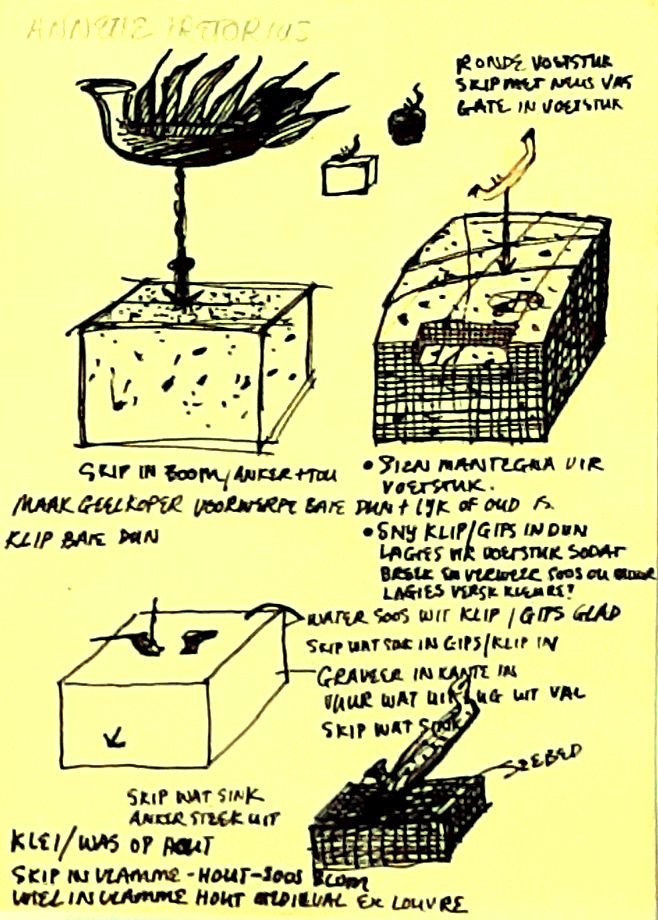 ANNETTE PRETORIUS
RONDE VOETSTUK
SKIP MET NEUS VAS
GATE IN VOETSTUK
SKIP IN BOOM/ANKER+TOU
MAAK GEELKOPER VOORWERPE BAIE DUN + LYK OF OUD IS.
KLIP BAIE DUN
• SIEN MANTEGNA VIR
VOETSTUK.
• SNY KLIP/GIPS IN DUN
LAGIES VIR VOETSTUK SODAT
BREEK EN VERWEER SOOS OU
LAGIES VERSK KLEURE?
WATER SOOS WIT KLIP/GIPS GLAD
SKIP WAT SINK IN GIPS/KLIP IN
GRAVEER IN KANTE IN
VUUR WAT UIT LUG UIT VAL
SKIP WAT SINK
SEEBED
SKIP WAT SINK
ANKER STEEK UIT
KLEI/WAS OP HOUT
SKIP IN VLAMME-HOUT-SOOS BLOM
WIEL IN VLAMME HOUT MEDIEVAL EX LOUVRE